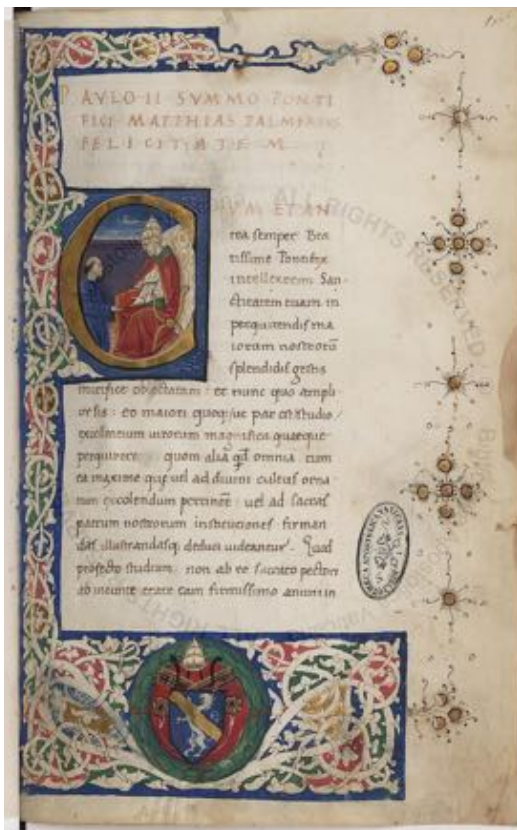 PAVLO II SVMMO PONTI
FICI MATTHIAS PALMERIVS
FELICITATEM
CVM ET AN
tea semper Bea
tissime Pontifex
intellexerim San
ctitatem tuam in
perquirendis ma
iorum nostrorū
splendidis gestis
mirifice oblectatam: et nunc quo ampli
us
eo maiori quoque par est studio
excellentium uirorum magnifica quaeque
perquirere quom alia omnia tum
ea maxime que uel ad diuini cultus orna
tum excolendum pertinēt uel ad sacras
patrum nostrorum institutiones firman
das illustrandasq; deduci uideantur. Quod
profecto studium non ab re sacrato pectori
ab ineunte etate tam firmissimo animi in